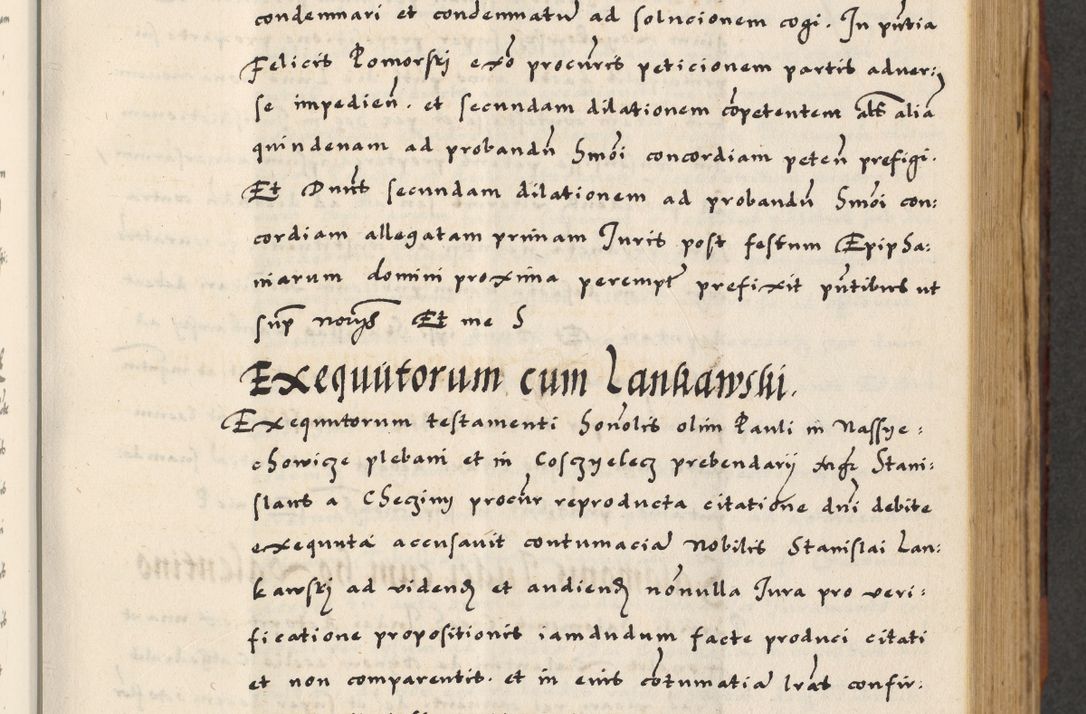 condemnari et condemnatur ad solucionem cogi. In pntia
Felicis Pomorski exo procuris peticionem partis adver:
se impedien. et secundam dilationem competentem als aliā
quindenam ad probandū hmōi concordiam petēn prefigi.
Et Dnns secundam dilationem ad probandū hmōi con:
cordiam allegatam primam Juris post festum Epipha:
niarum domini proxima perempt prefixit pntibus ut
sup Et me S
Exequutorum cum Lankawski.
Exequutorum testamenti honōlis olim Pauli in Nassye:
chowicze plebani et in Cosczyelecz prebendarij Stani:
slaus a Checziny procūr reproducta citatione dni debite
exequuta accusavit contumaciā Nobilis Stanislai Lan:
kawski ad videndū et audiendū nōnulla Jura pro veri:
ficatione propositionis iamdudum facte produci citati
et non comparentis. et in eius cōtumatiā lrās confir: